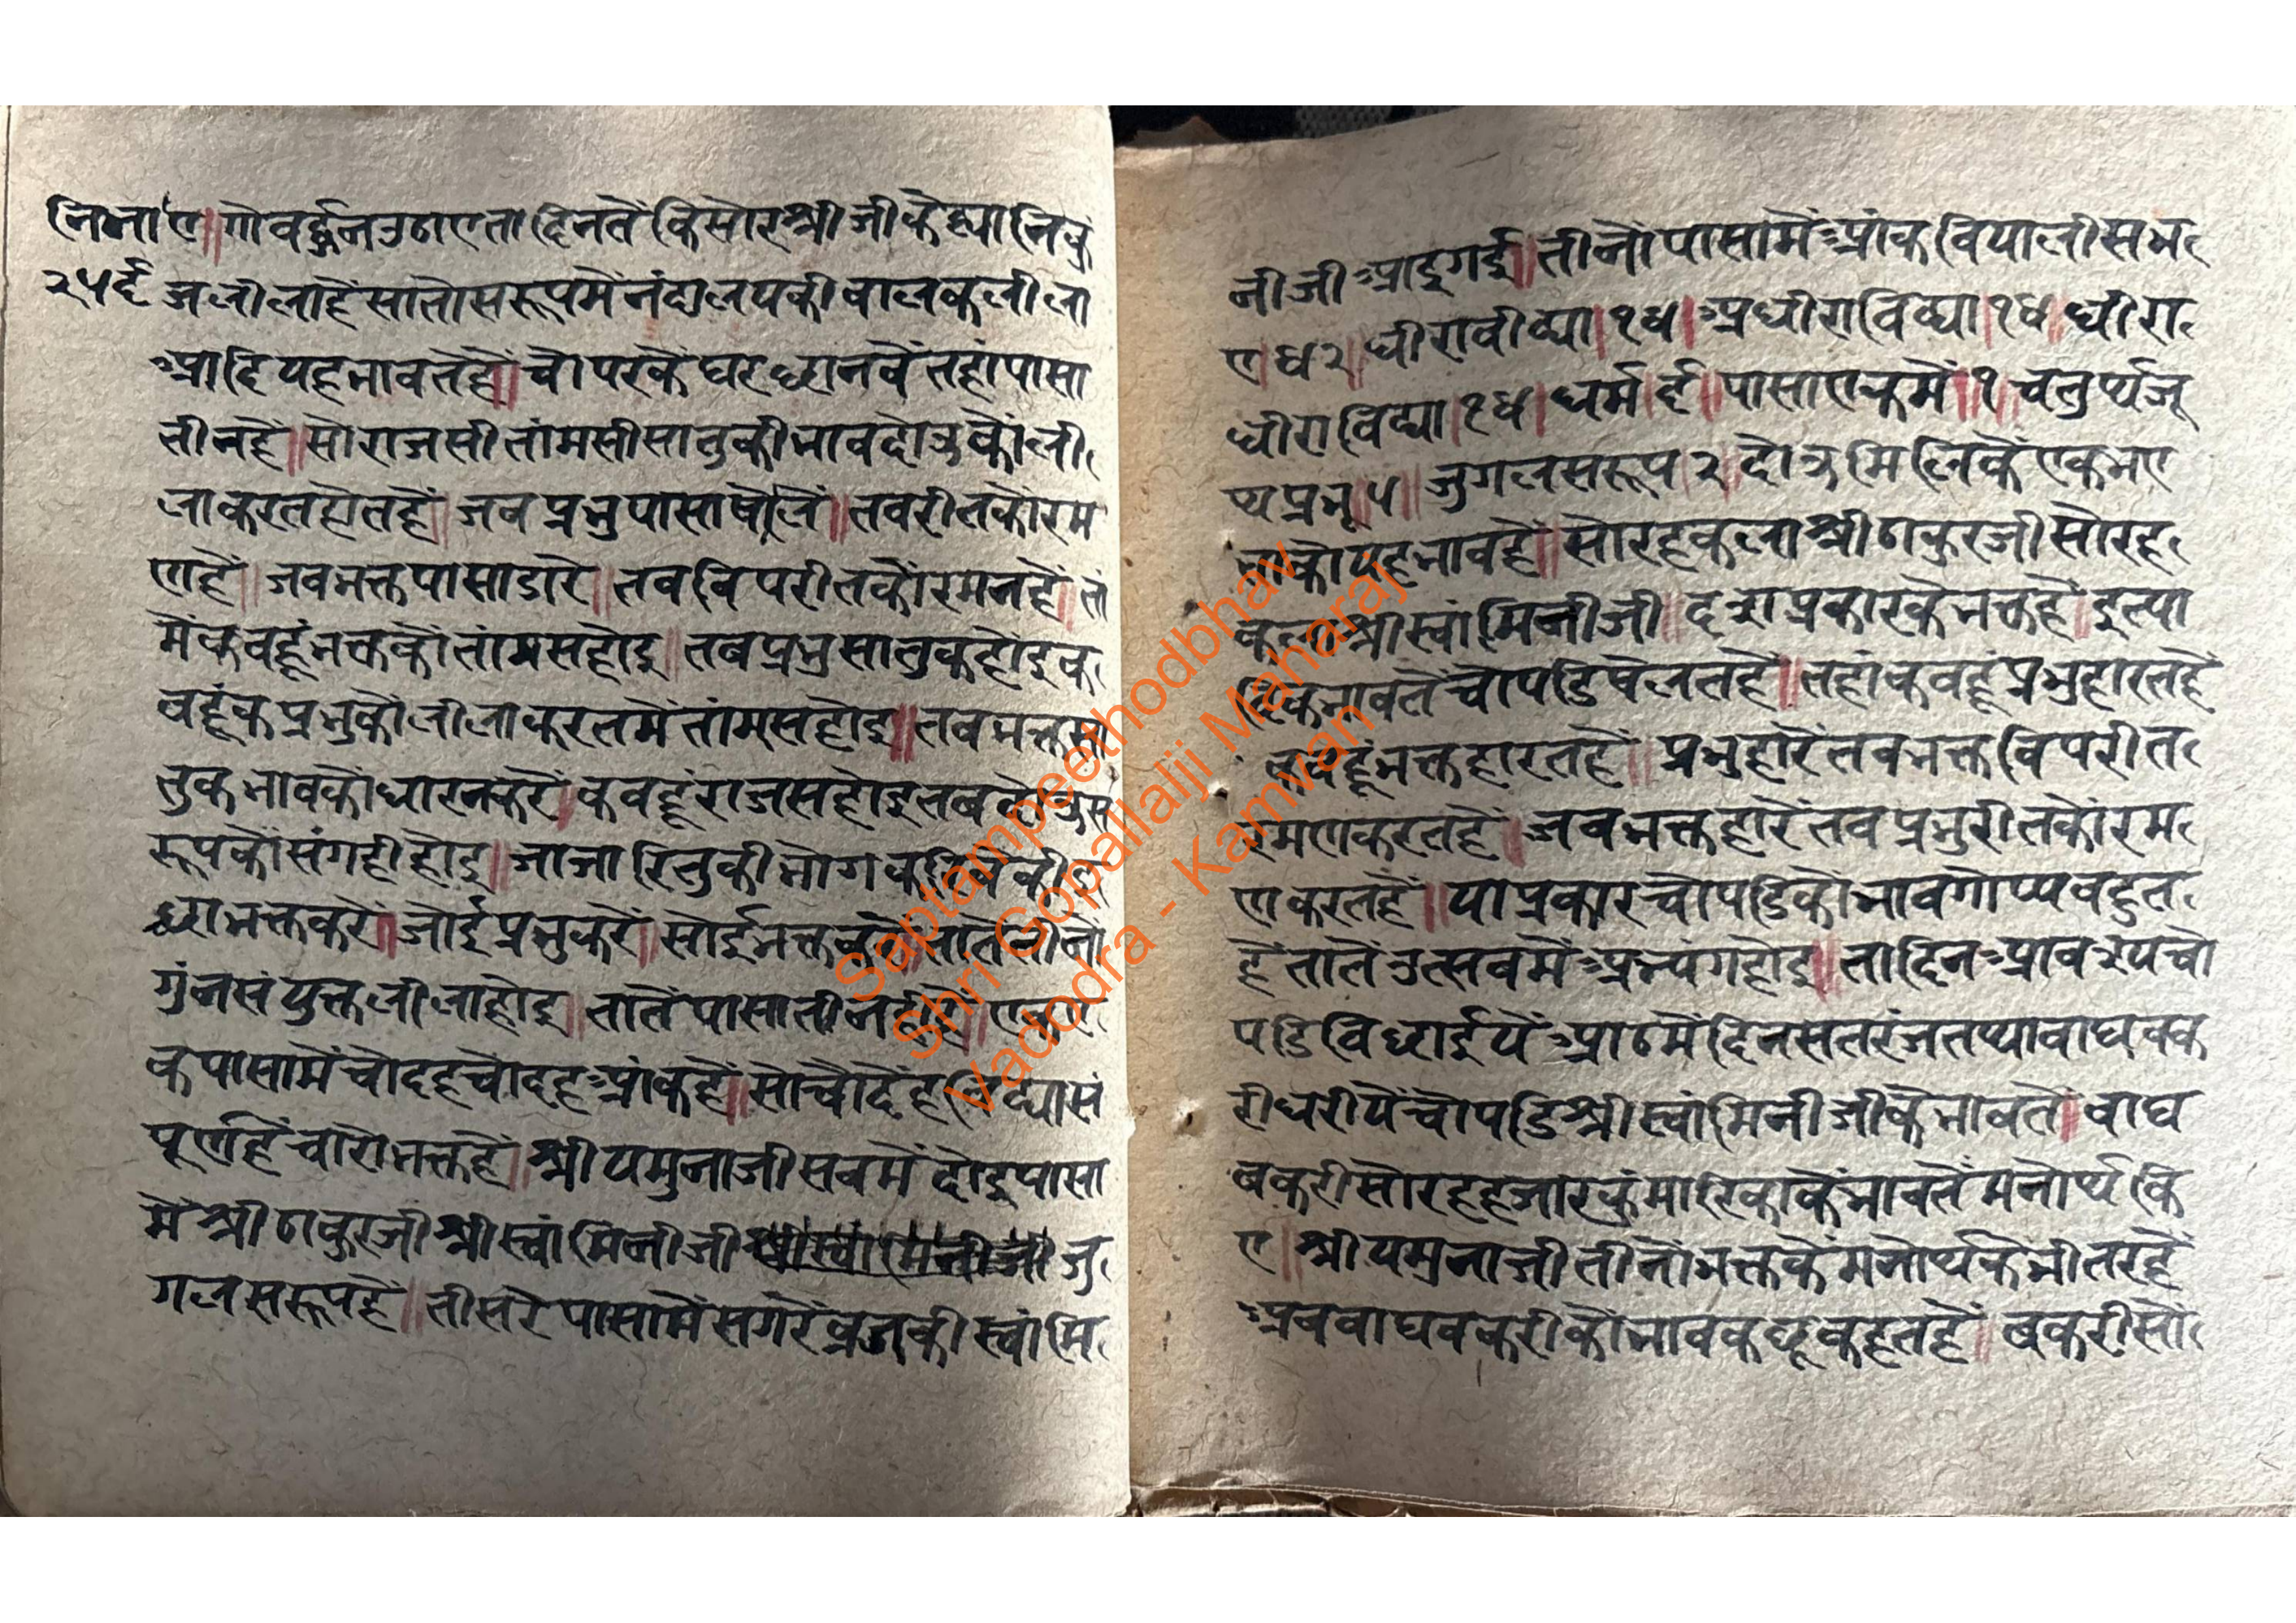 नि.भा.ए॥गोवर्द्धनउठाएतादिनतेंकिसोरश्रीजीकेह्यानिकुं
२५६ जलीलाहैंसातोसरूपमेंनंदालयकीबालकलीला
आदियहभावतेहैं॥चोपरकेंघरछानवेंतहांपासा
तीनहैं॥सोराजसीतांमसीसातुकीभावदोउकोंली
लाकरतहोतहैं॥जबप्रभुपासाषेलें॥तवरीतकोंरम
णहैं॥जवभक्तपासाडारे॥तवविपरीतकोंरमनहैं॥तां
मेंकबहूंभक्तकोंतांमसहोइ॥तबप्रभुसातुकहोइक
बहूंकप्रभुकोंलीलाकरतमेंतांमसहोइ॥तबभक्तसा
तुकभावकोंधारनकरें।कबहूंराजसहोइतबदोउस
रूपकोंसंगहीहोइ॥जाजारितुकीभोगकरिवेकीइ
छाभक्तकरें।जोईप्रभुकरें॥सोईभक्तकरें॥तातेंतीनों
गुंनसंयुक्तलीलाहोइ॥तातेंपासातीनहोइ॥एकए
कपासामेंचोदहचोदहआंकहैं॥सोचौदेंहविद्यासं
पूर्णहैंचारोभक्तहें॥श्रीयमुनाजीसबमेंदोइपासा
मेंश्रीठाकुरजीश्रीस्वांमिनीजीश्रीस्वांमिनीजीजु
गलसरूपहें॥तीसरेपासामेंसगरेंव्रजकीस्वांमि
नीजीआइगई॥तीनोंपासामेंआंकवियालीसभ
ए।४२॥धीरावीद्या।१४।अधीराविद्या।१४॥धीरा
धीराविद्या।१४।धर्म।६॥पासाएकमें।१॥चतुर्थ्यजू
थ्यप्रभू।५॥जुगलसरूप।२।दोउमिलिकेंएकभए
ताकोयहभावहैं॥सोरहकलाश्रीठाकुरजीसोरह
कलाश्रीस्वांमिनीजी॥दशप्रकारकेभक्तहैं॥इत्या
दिकभावतेंचोपडिषेलतहैं॥तहांकबहूंप्रभुहारतहें
कबहूंभक्तहारतहैं॥प्रभुहारेंतबभक्तविपरीत
रमणकरतहें॥जबभक्तहारेंतवप्रभुरीतकोंरम
णकरतहैं॥याप्रकारचोपडिकोभावगोप्यबहुत
हैंतातेंउत्सवमेंअभ्यंगहोइ॥तादिनआवश्यचो
पडिविछाईयेंआठमेंदिनसतरंजतथावाघबक
रीधरीयेंचोपडिश्रीस्वांमिनीजीकेभावतें।वाघ
बकरीसोरहहजारकुंमारिकाकेंभावतेंमनोर्थकि
ए॥श्रीयमुनाजीतीनोंभक्तकेमनोर्थकेभीतरहें
अबवाघबकरीकोंभावकछूकहतहैं॥बकरीसो
Saptampeethodbhav
Shri Gopallalji Maharaj
Vadodra - Kamvan